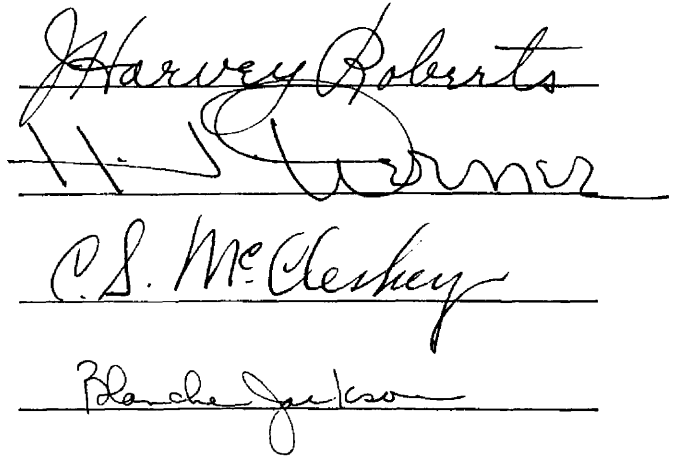 J Harvey Roberts
Werner
C. S. McCleskey
Blanche Jackson